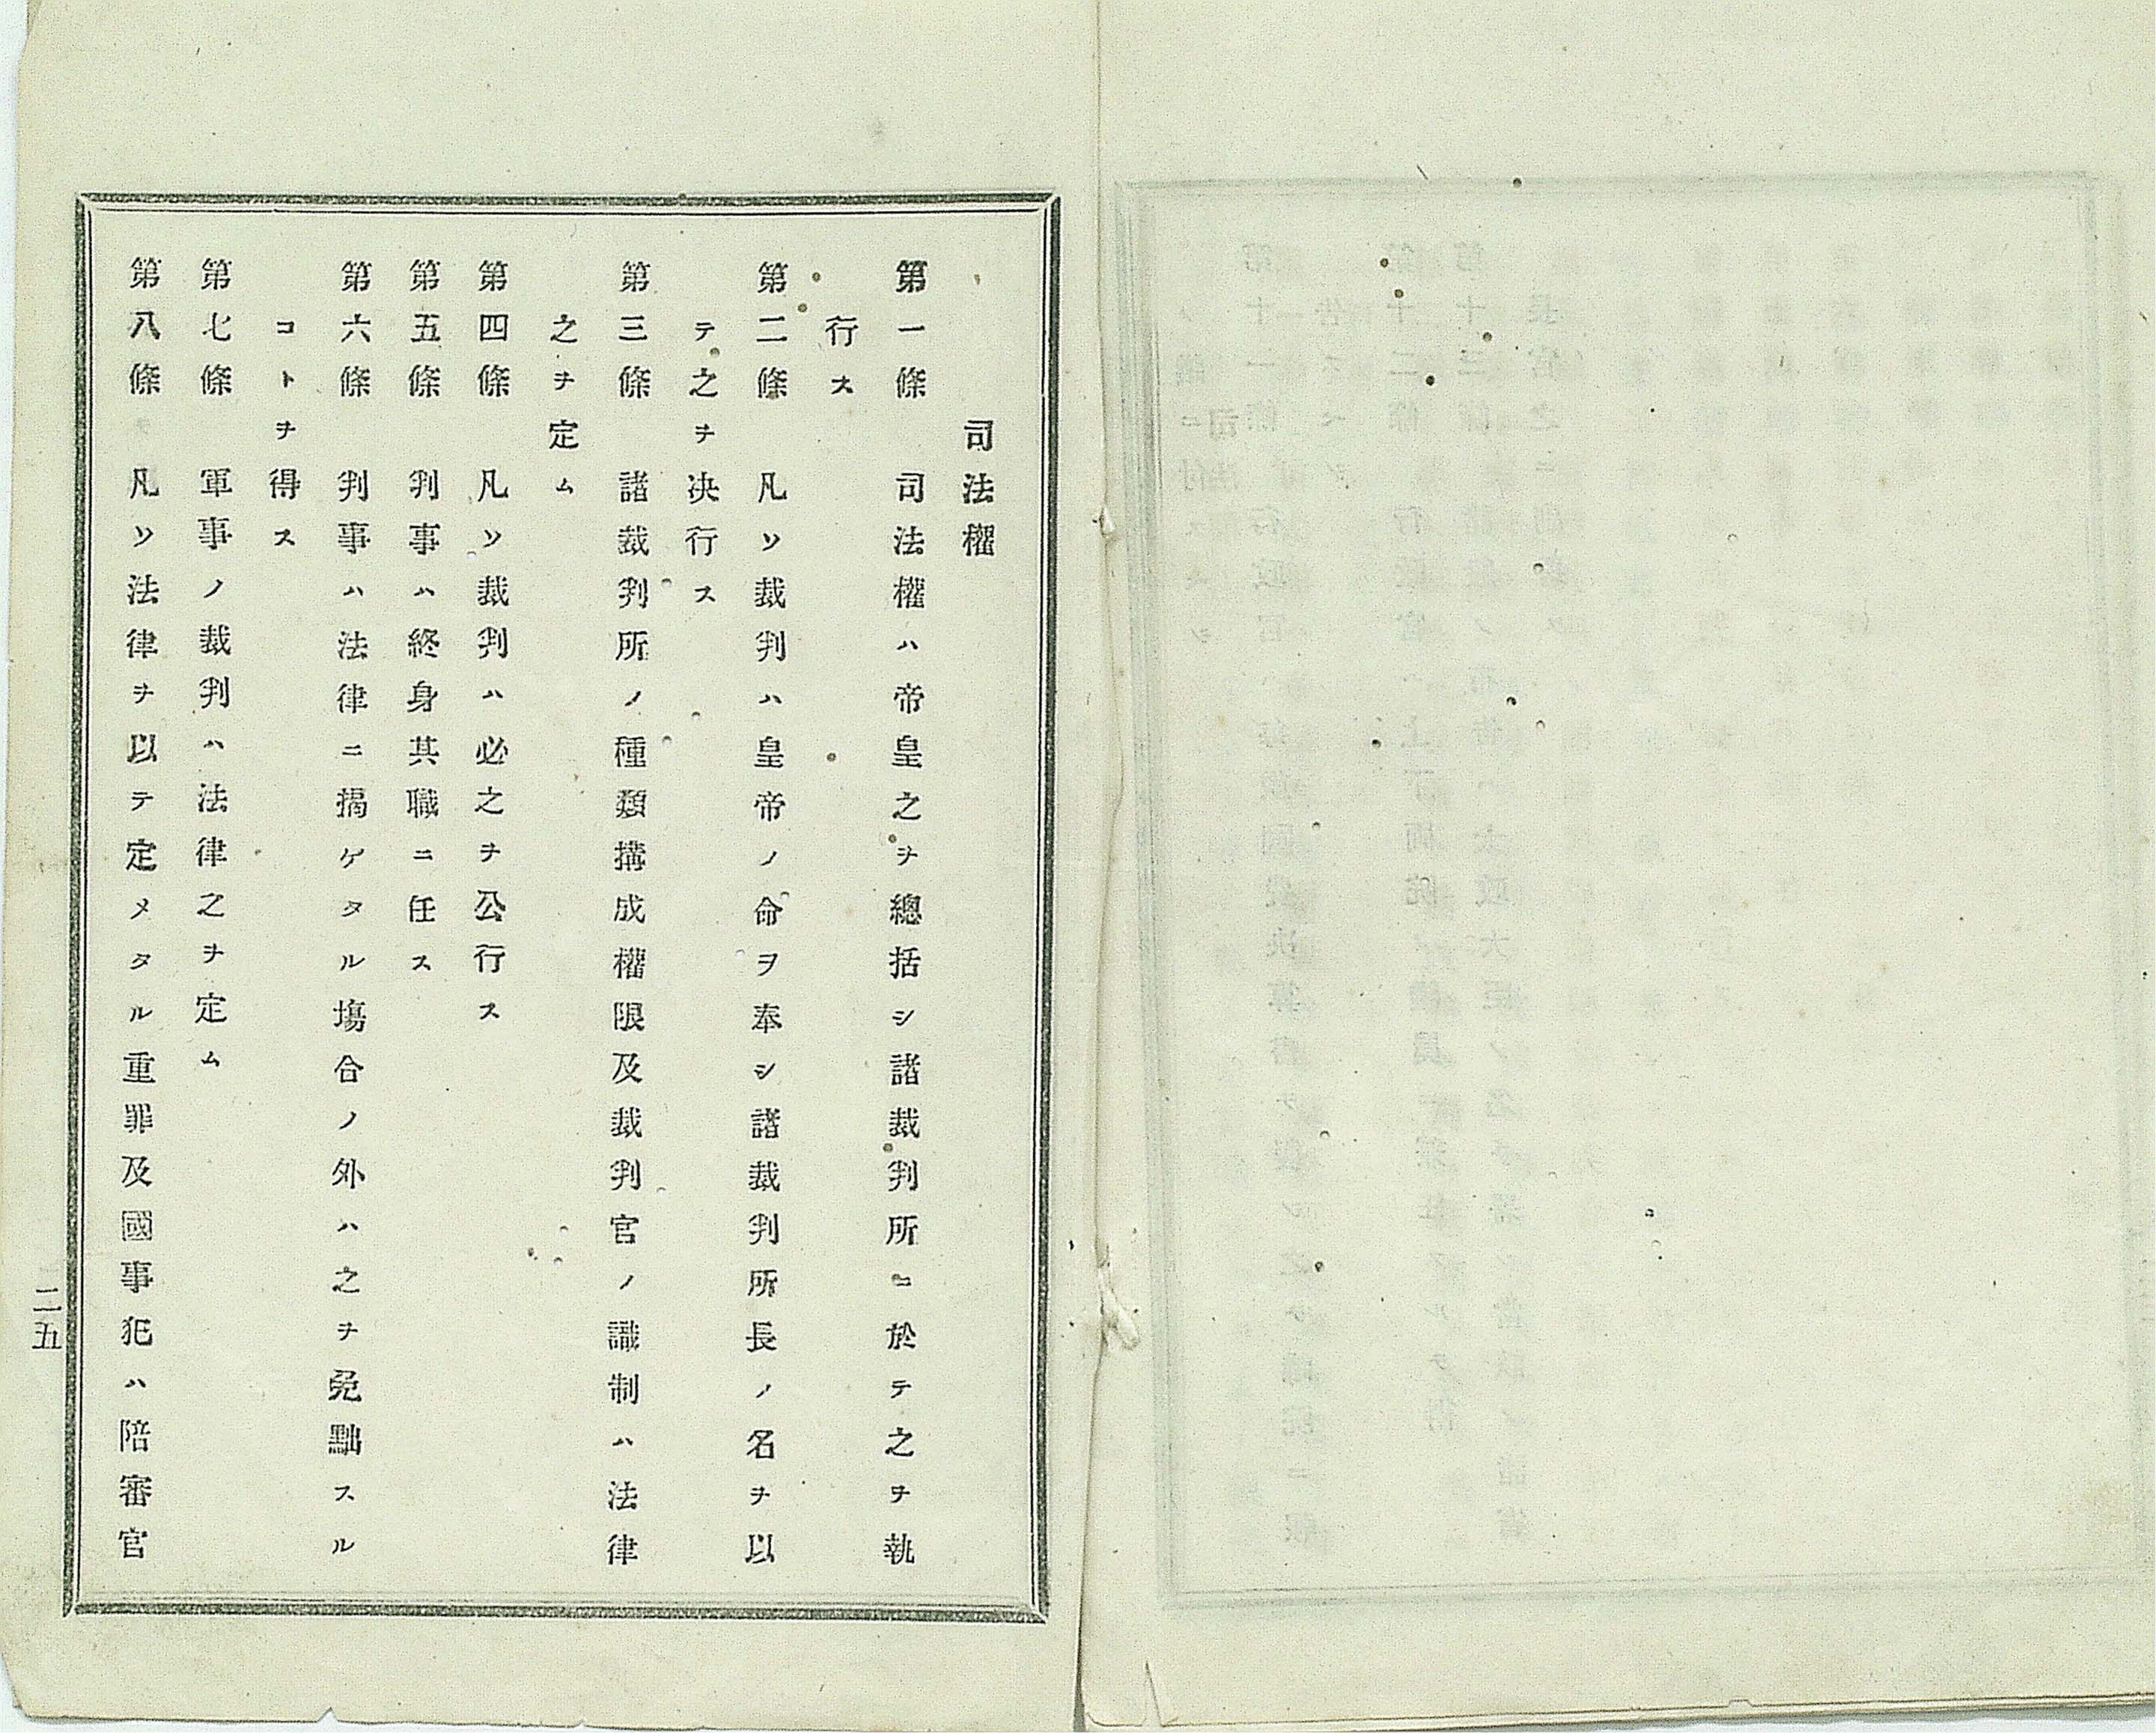 司法權
第一條　司法權ハ帝皇之ヲ總括シ諸裁判所ニ於テ之ヲ執
行ス
第二條　凡ソ裁判ハ皇帝ノ命ヲ奉シ諸裁判所長ノ名ヲ以
テ之ヲ决行ス
第三條　諸裁判所ノ種類搆成權限及裁判官ノ識制ハ法律
之ヲ定ム
第四條　凡ソ裁判ハ必之ヲ公行ス
第五條　判事ハ終身其職ニ任ス
第六條　判事ハ法律ニ揭ケタル塲合ノ外ハ之ヲ免黜スル
コトヲ得ス
第七條　軍事ノ裁判ハ法律之ヲ定ム
第八條　凡ソ法律ヲ以テ定メタル重罪及國事犯ハ陪審官
二五